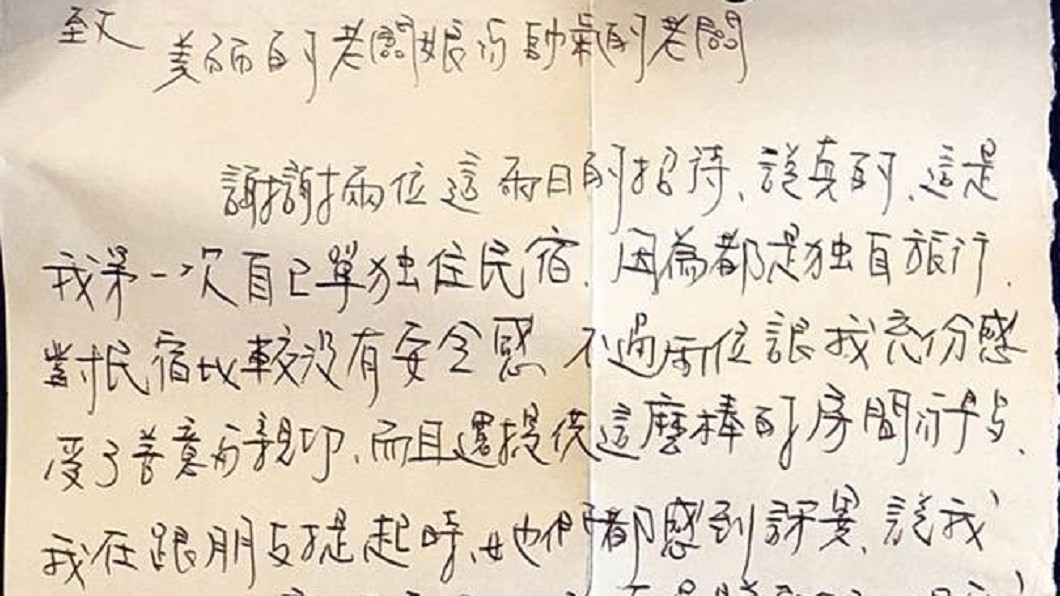 至文
美丽的老闆娘与帥氣的老闆
謝謝兩位這兩日的招待、說真的、這是
我第一次自己單独住民宿、因為都是独自旅行、
對民宿比較沒有安全感 不過兩位讓我充份感
受了善意与親切、而且還提供這麼棒的房間
我在跟朋友提起時、她們都感到訝異、說我